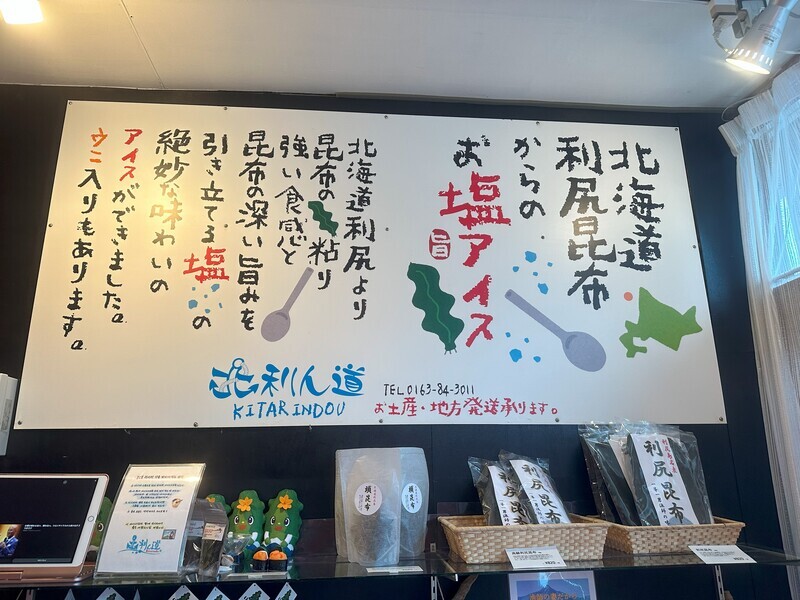 北海道
利尻昆布
からの
お塩アイス
旨
北海道利尻より
昆布の粘り
強い食感と
昆布の深い旨みを
引き立てる塩の
絶妙な味わいの
アイスができました。
ウニ入りもあります。
北利ん道
KITARINDOU
TEL 0163-84-3011
お土産・地方発送承ります。
利尻昆布
利尻昆布